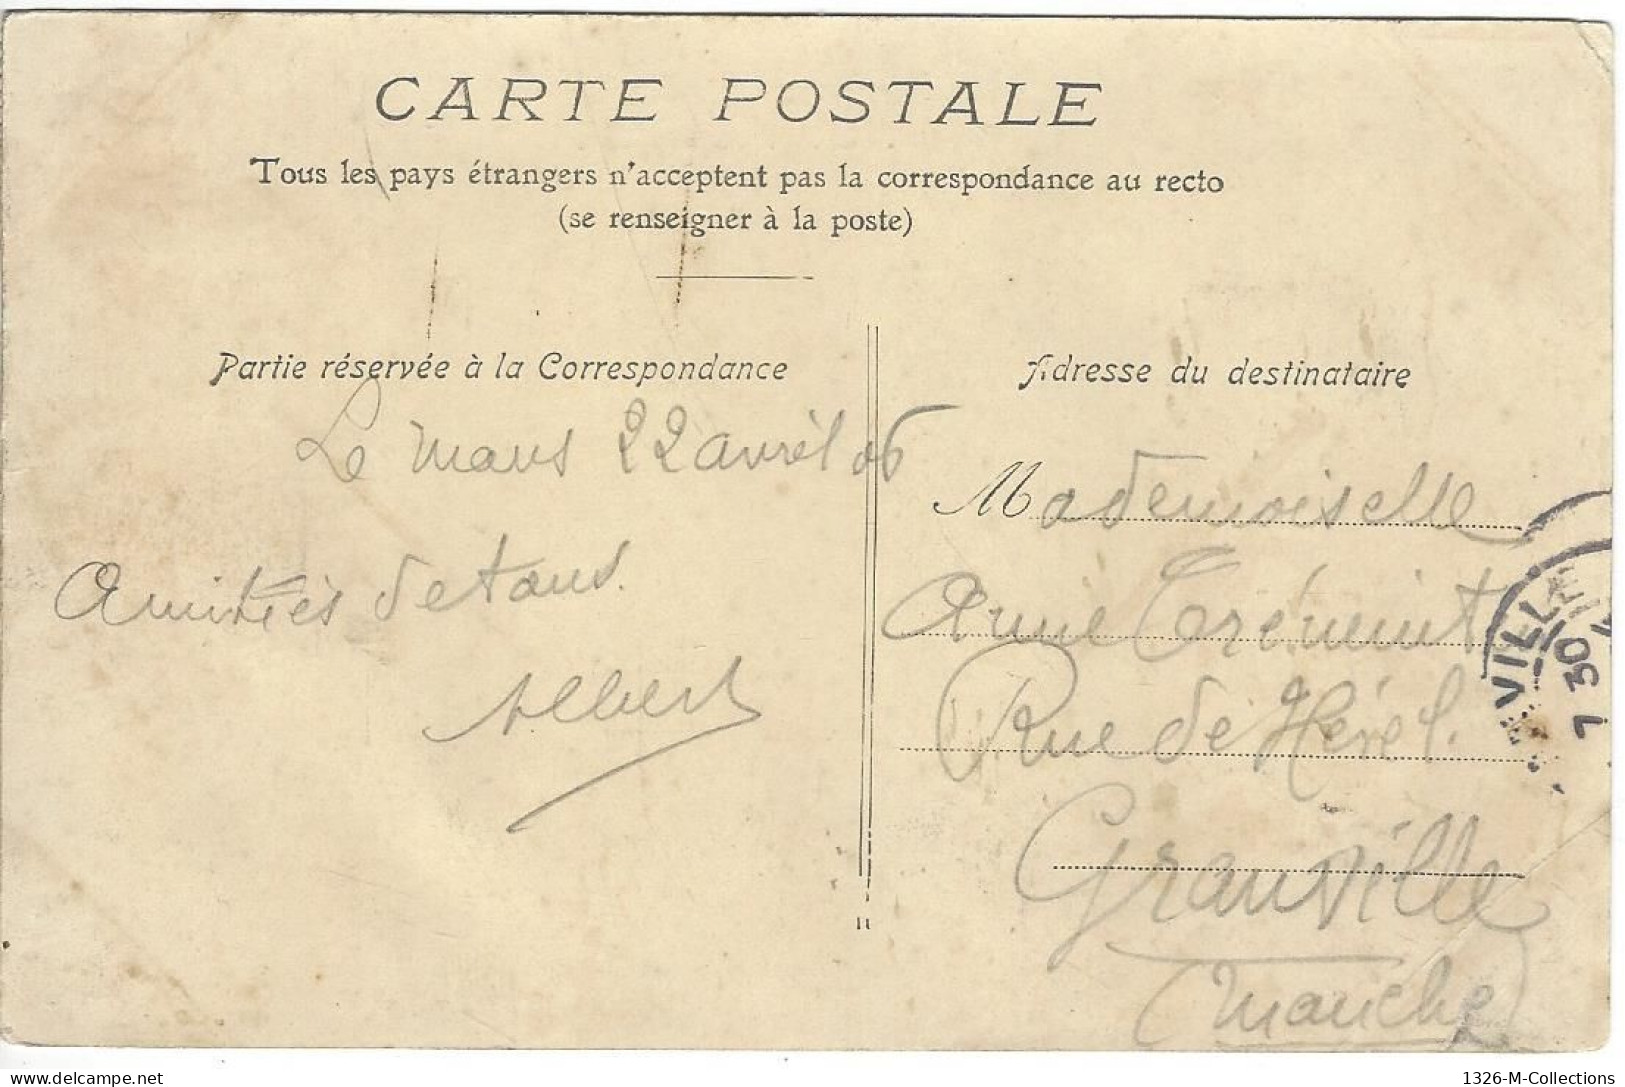 CARTE POSTALE
Tous les pays étrangers n'acceptent pas la correspondance au recto
(se renseigner à la poste)
Partie réservée à la Correspondance
Le Mans 22 avril 06
Amitiés de tous.
Albert
Adresse du destinataire
Mademoiselle
Anne Trémint
Rue de Hérel.
Granville
(Manche)
VILLE
7 30
11
delcampe.net
1326-M-Collections